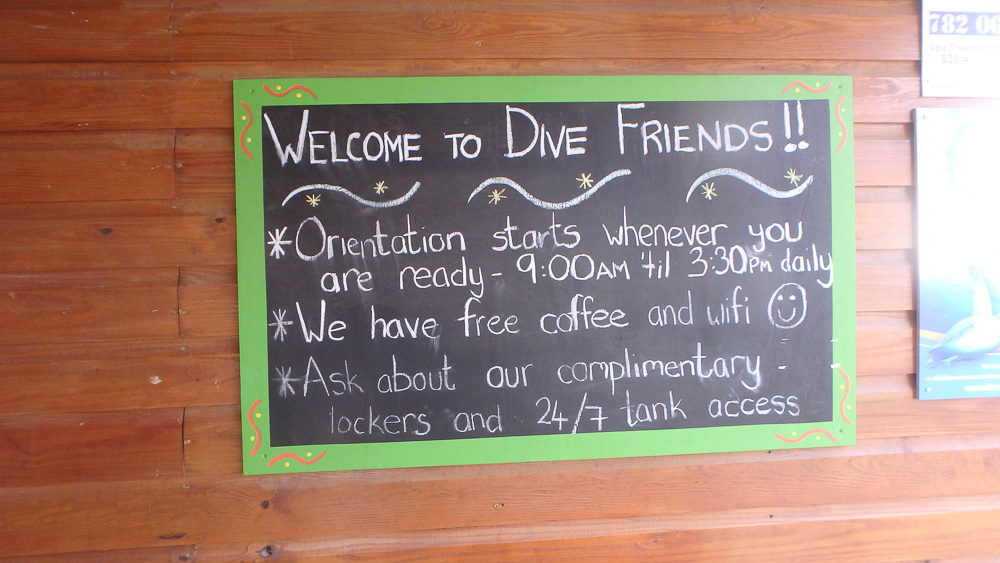 WELCOME TO DIVE FRIENDS!!
* Orientation starts whenever you
are ready - 9:00AM 'til 3:30PM daily
* We have free coffee and wifi ☺
* Ask about our complimentary -
lockers and 24/7 tank access
782 06
Spa Treatm
$30